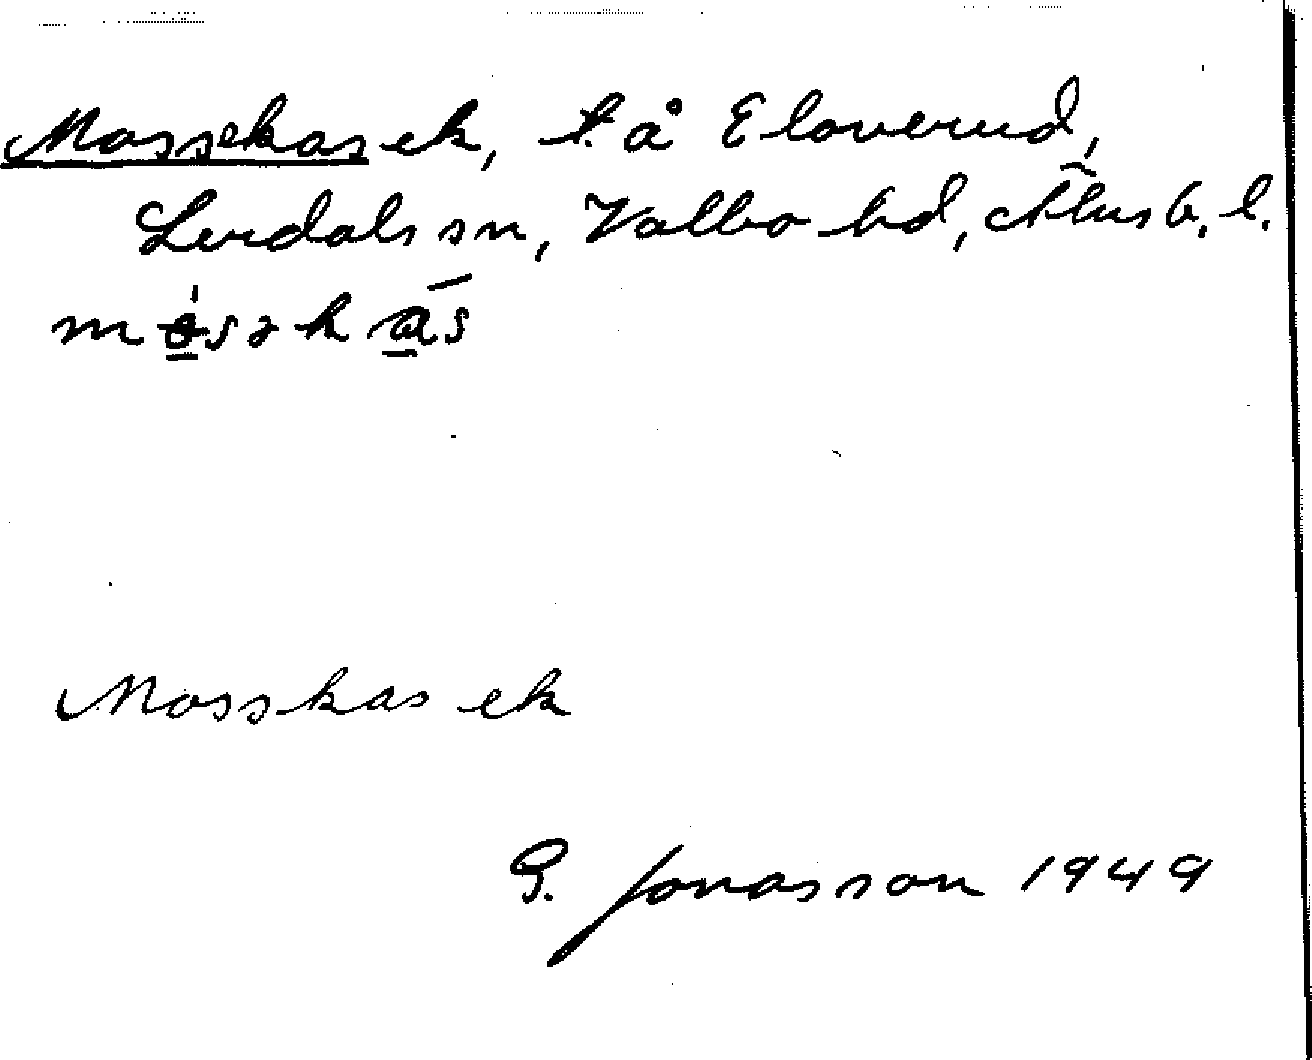 Mossekasek, t. å Eloverud,
Lerdals sn, Valbo hd, Älvsb. l.
Mosskas ek
G. Jonasson 1949